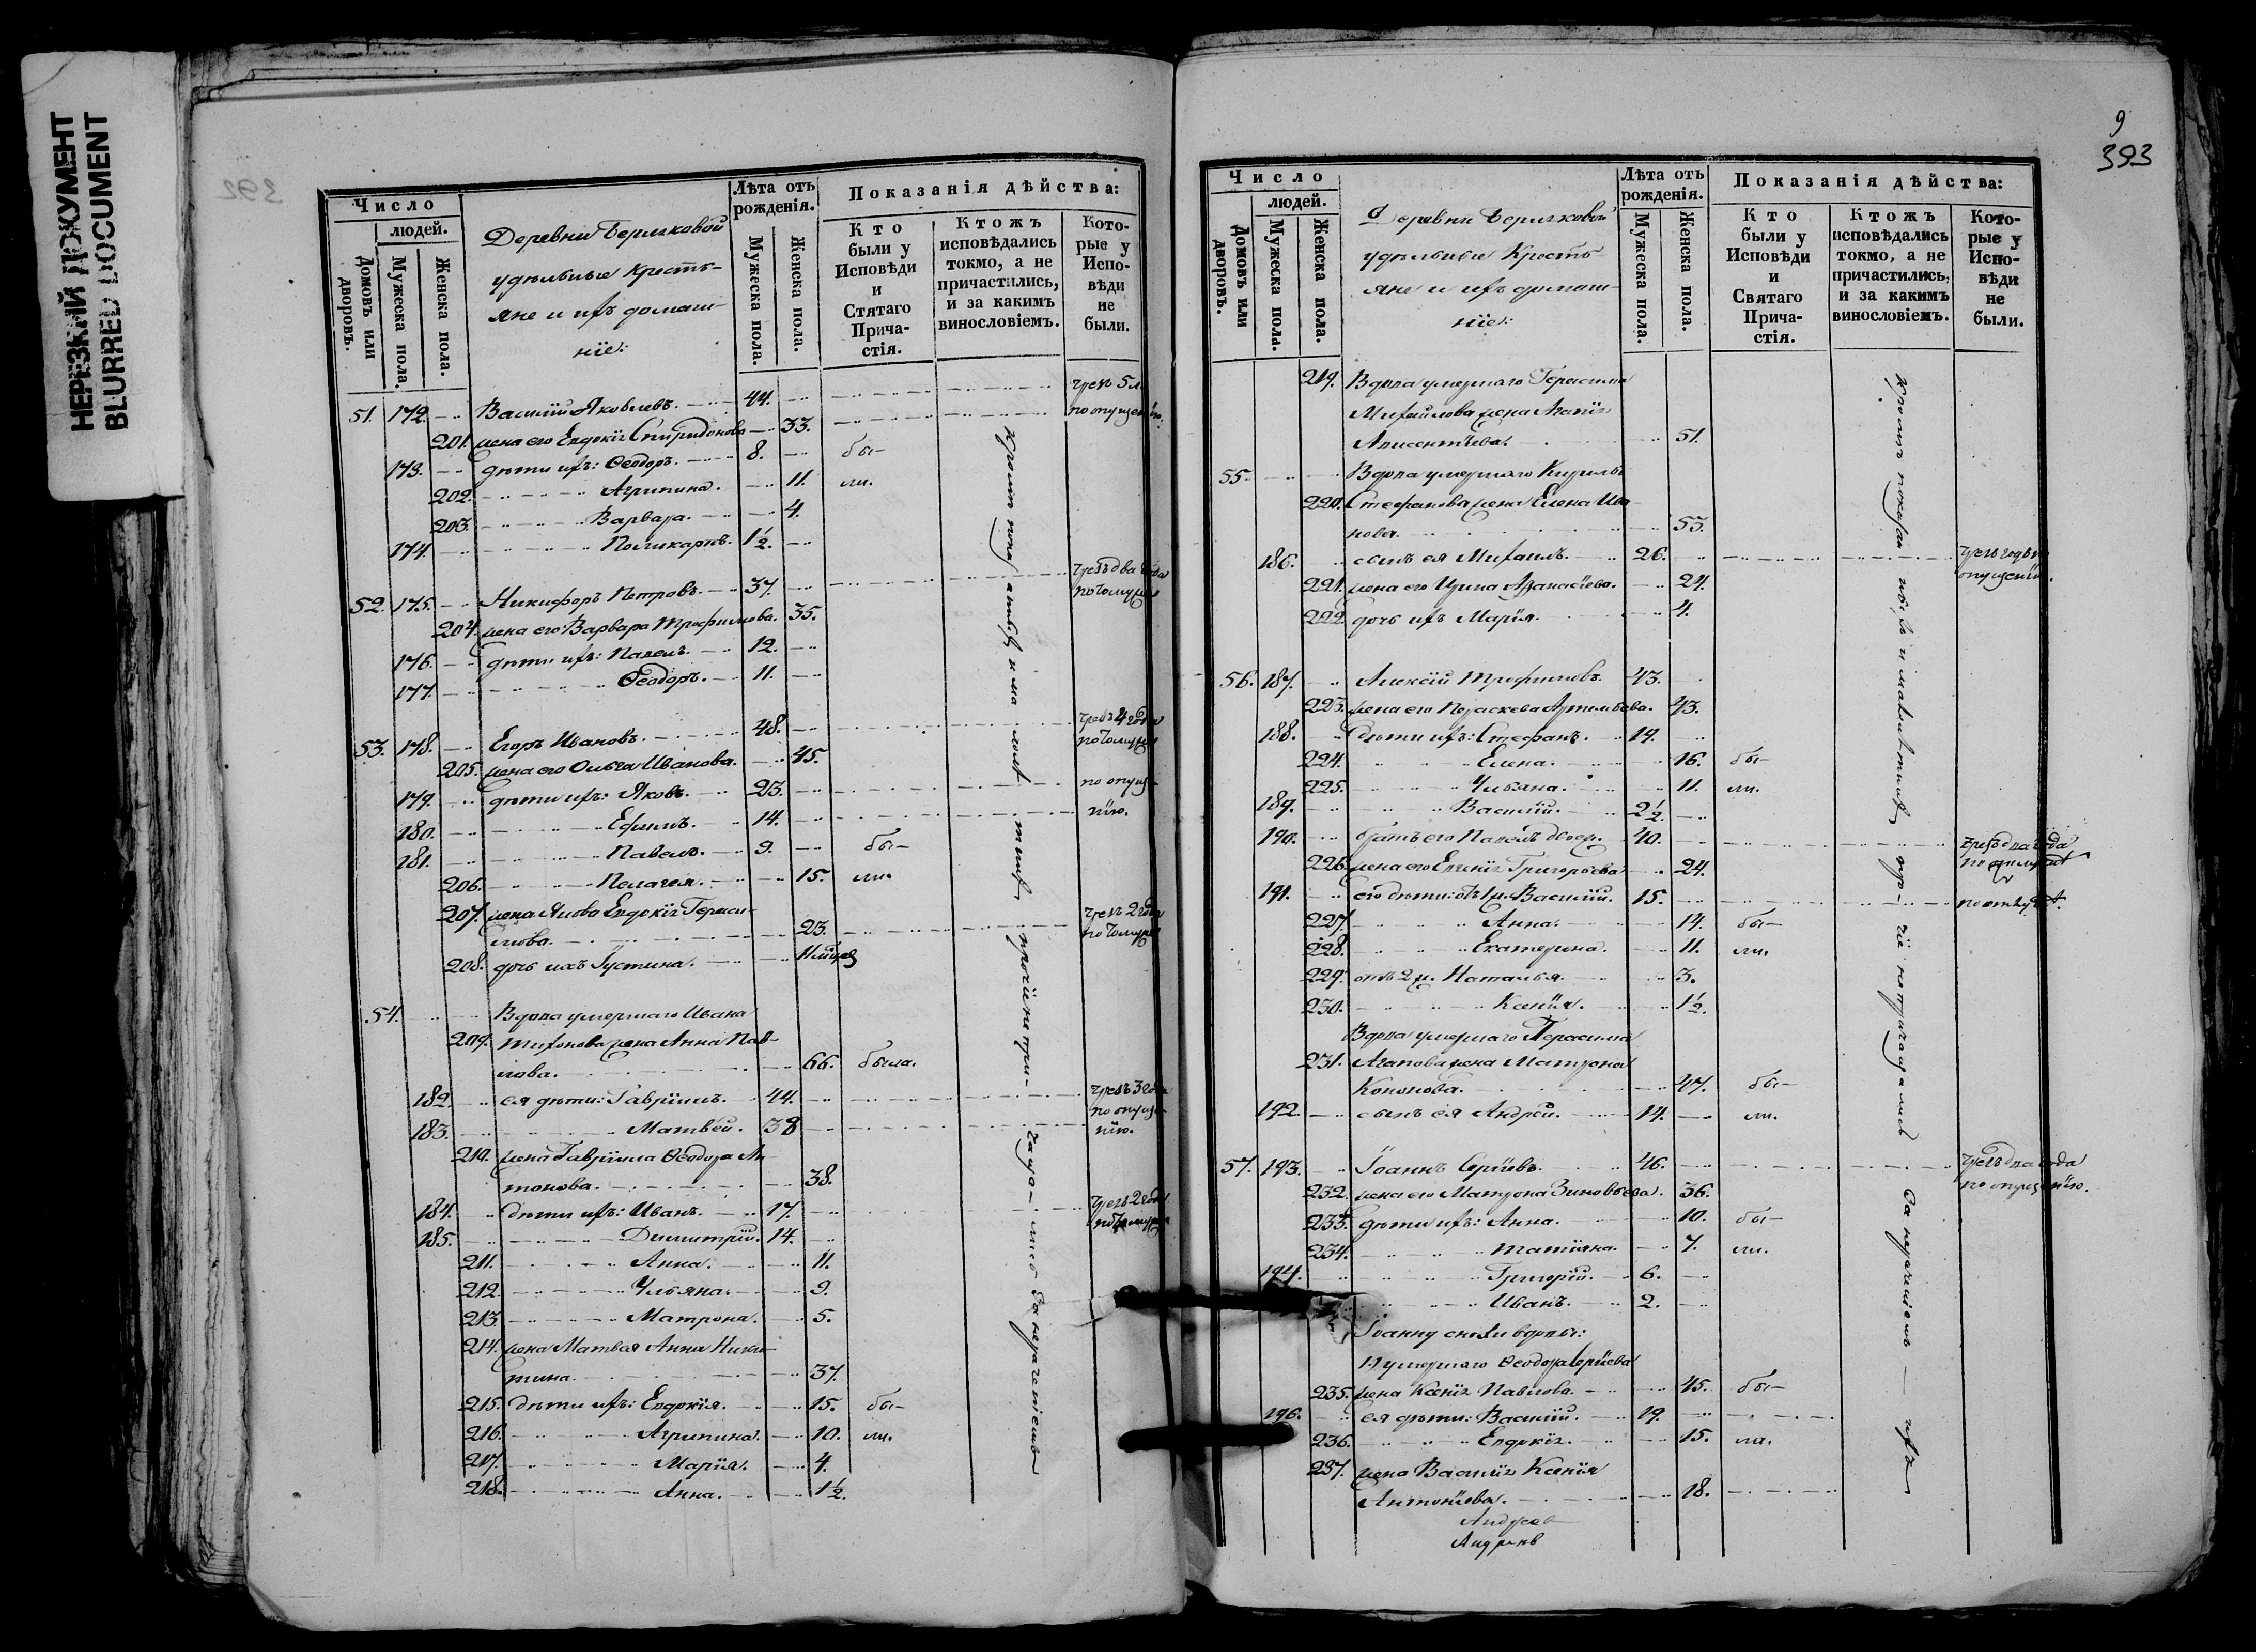 НЕРЕЗКИЙ ДОКУМЕНТ
BLURRED DOCUMENT
392
Число
людей.
Домовъ или дворовъ.
Мужеска пола.
Женска пола.
Деревни
удѣльные кресть-
яне и ихъ домаш-
ніе:
Лѣта отъ рожденія.
Мужеска пола.
Женска пола.
Показанія дѣйства:
Кто были у Исповѣди и Стятаго Прича-стія.
Ктожъ исповѣдались токмо, а не причастились, и за какимъ винословіемъ.
Кото-рые у Испо-вѣди не были.
51. 172. Василій Яковлевъ. 44.
201. жена его Евдокія Спиридонова 33.
173. дѣти ихъ: Ѳеодоръ. 8. бы-
202. Агрипина. 11. ли.
203. Варвара. 4.
174. Поликарпъ. 1½.
52. 175. Никифоръ Петровъ. 37. чрезъ два года
204. жена его Варвара Трофимова. 35.
176. дѣти ихъ: Павелъ. 12.
177. Ѳеодоръ. 11.
53. 178. Егоръ Ивановъ. 48. чрезъ 4 года
205. жена его Ольга Иванова. 45.
179. дѣти ихъ: Яковъ. 23. по опуще-
180. Ефимъ. 14. нію.
181. Павелъ. 9. бы-
206. Пелагея. 15. ли.
207. жена Якова Евдокія Гераси-
мова. 23. чрезъ 2 года
208. дочь ихъ Іустина.
54. Вдова умершаго Ивана
209. Тихонова жена Анна Пав-
лова. 66. была.
182. ея дѣти: Гавріилъ. 44. чрезъ 3 года
по опуще-
183. Матвей. 38 нію.
210. жена Гавріила Ѳеодора Ан-
тонова. 38.
184. дѣти ихъ: Иванъ. 17. чрезъ 2 года
185. Димитрій. 14.
211. Анна. 11.
212. Ульяна. 9.
213. Матрона. 5.
214. жена Матвея Анна Ники-
тина. 37.
215. дѣти ихъ: Евдокія. 15. бы-
216. Агрипина. 10. ли.
217. Марія. 4.
218. Анна. 1½.
9
393
Число
людей.
Домовъ или дворовъ.
Мужеска пола.
Женска пола.
Деревни
удѣльные Кресть-
яне и ихъ домаш-
ніе:
Лѣта отъ рожденія.
Мужеска пола.
Женска пола.
Показанія дѣйства:
Кто были у Исповѣди и Святаго Прича-стія.
Ктожъ исповѣдались токмо, а не причастились, и за какимъ винословіемъ.
Кото-рые у Испо-вѣди не были.
219. Вдова умершаго Герасима
Михайлова жена Агапія
51.
55. Вдова умершаго Кирилы
220. Стефанова жена Елена Ива-
нова. 53.
186. сынъ ея Михаилъ. 26. чрезъ годъ по
опущенію.
221. жена его Ирина Аѳанасіева. 24.
222. дочь ихъ Марія. 4.
56. 187. Алексій Трофимовъ. 43.
223. жена его Параскева Артемьева. 43.
188. дѣти ихъ: Стефанъ. 19.
224. Елена. 16. бы-
225. Ульяна. 11. ли.
189. Василій. 2½.
190. братъ его Павелъ 40. чрезъ два года
226. жена его Евгенія Григорьева 24.
191. его дѣти: отъ 1 ж. Василій. 15.
227. Анна. 14. бы-
228. Екатерина. 11. ли.
229. отъ 2 ж. Наталья. 3.
230. Ксенія. 1½.
Вдова умершаго Герасима
231. Агапова жена Матрона
Кононова. 47. бы-
192. сынъ ея Андрей. 14. ли.
57. 193. Іоаннъ Сергіевъ. 46. чрезъ два года
по опущенію.
232. жена его Матрона Зиновьева. 36.
233. дѣти ихъ: Анна. 10. бы-
234. Татіяна. 7. ли.
194. Григорій. 6.
Иванъ. 2.
Іоанну снохи вдовы:
1) умершаго Ѳеодора Сергіева
235. жена Ксенія Павлова. 45. бы-
196. ея дѣти: Василій. 19.
236. Евдокія. 15. ли.
237. жена Василія Ксенія
Антонова. 18.